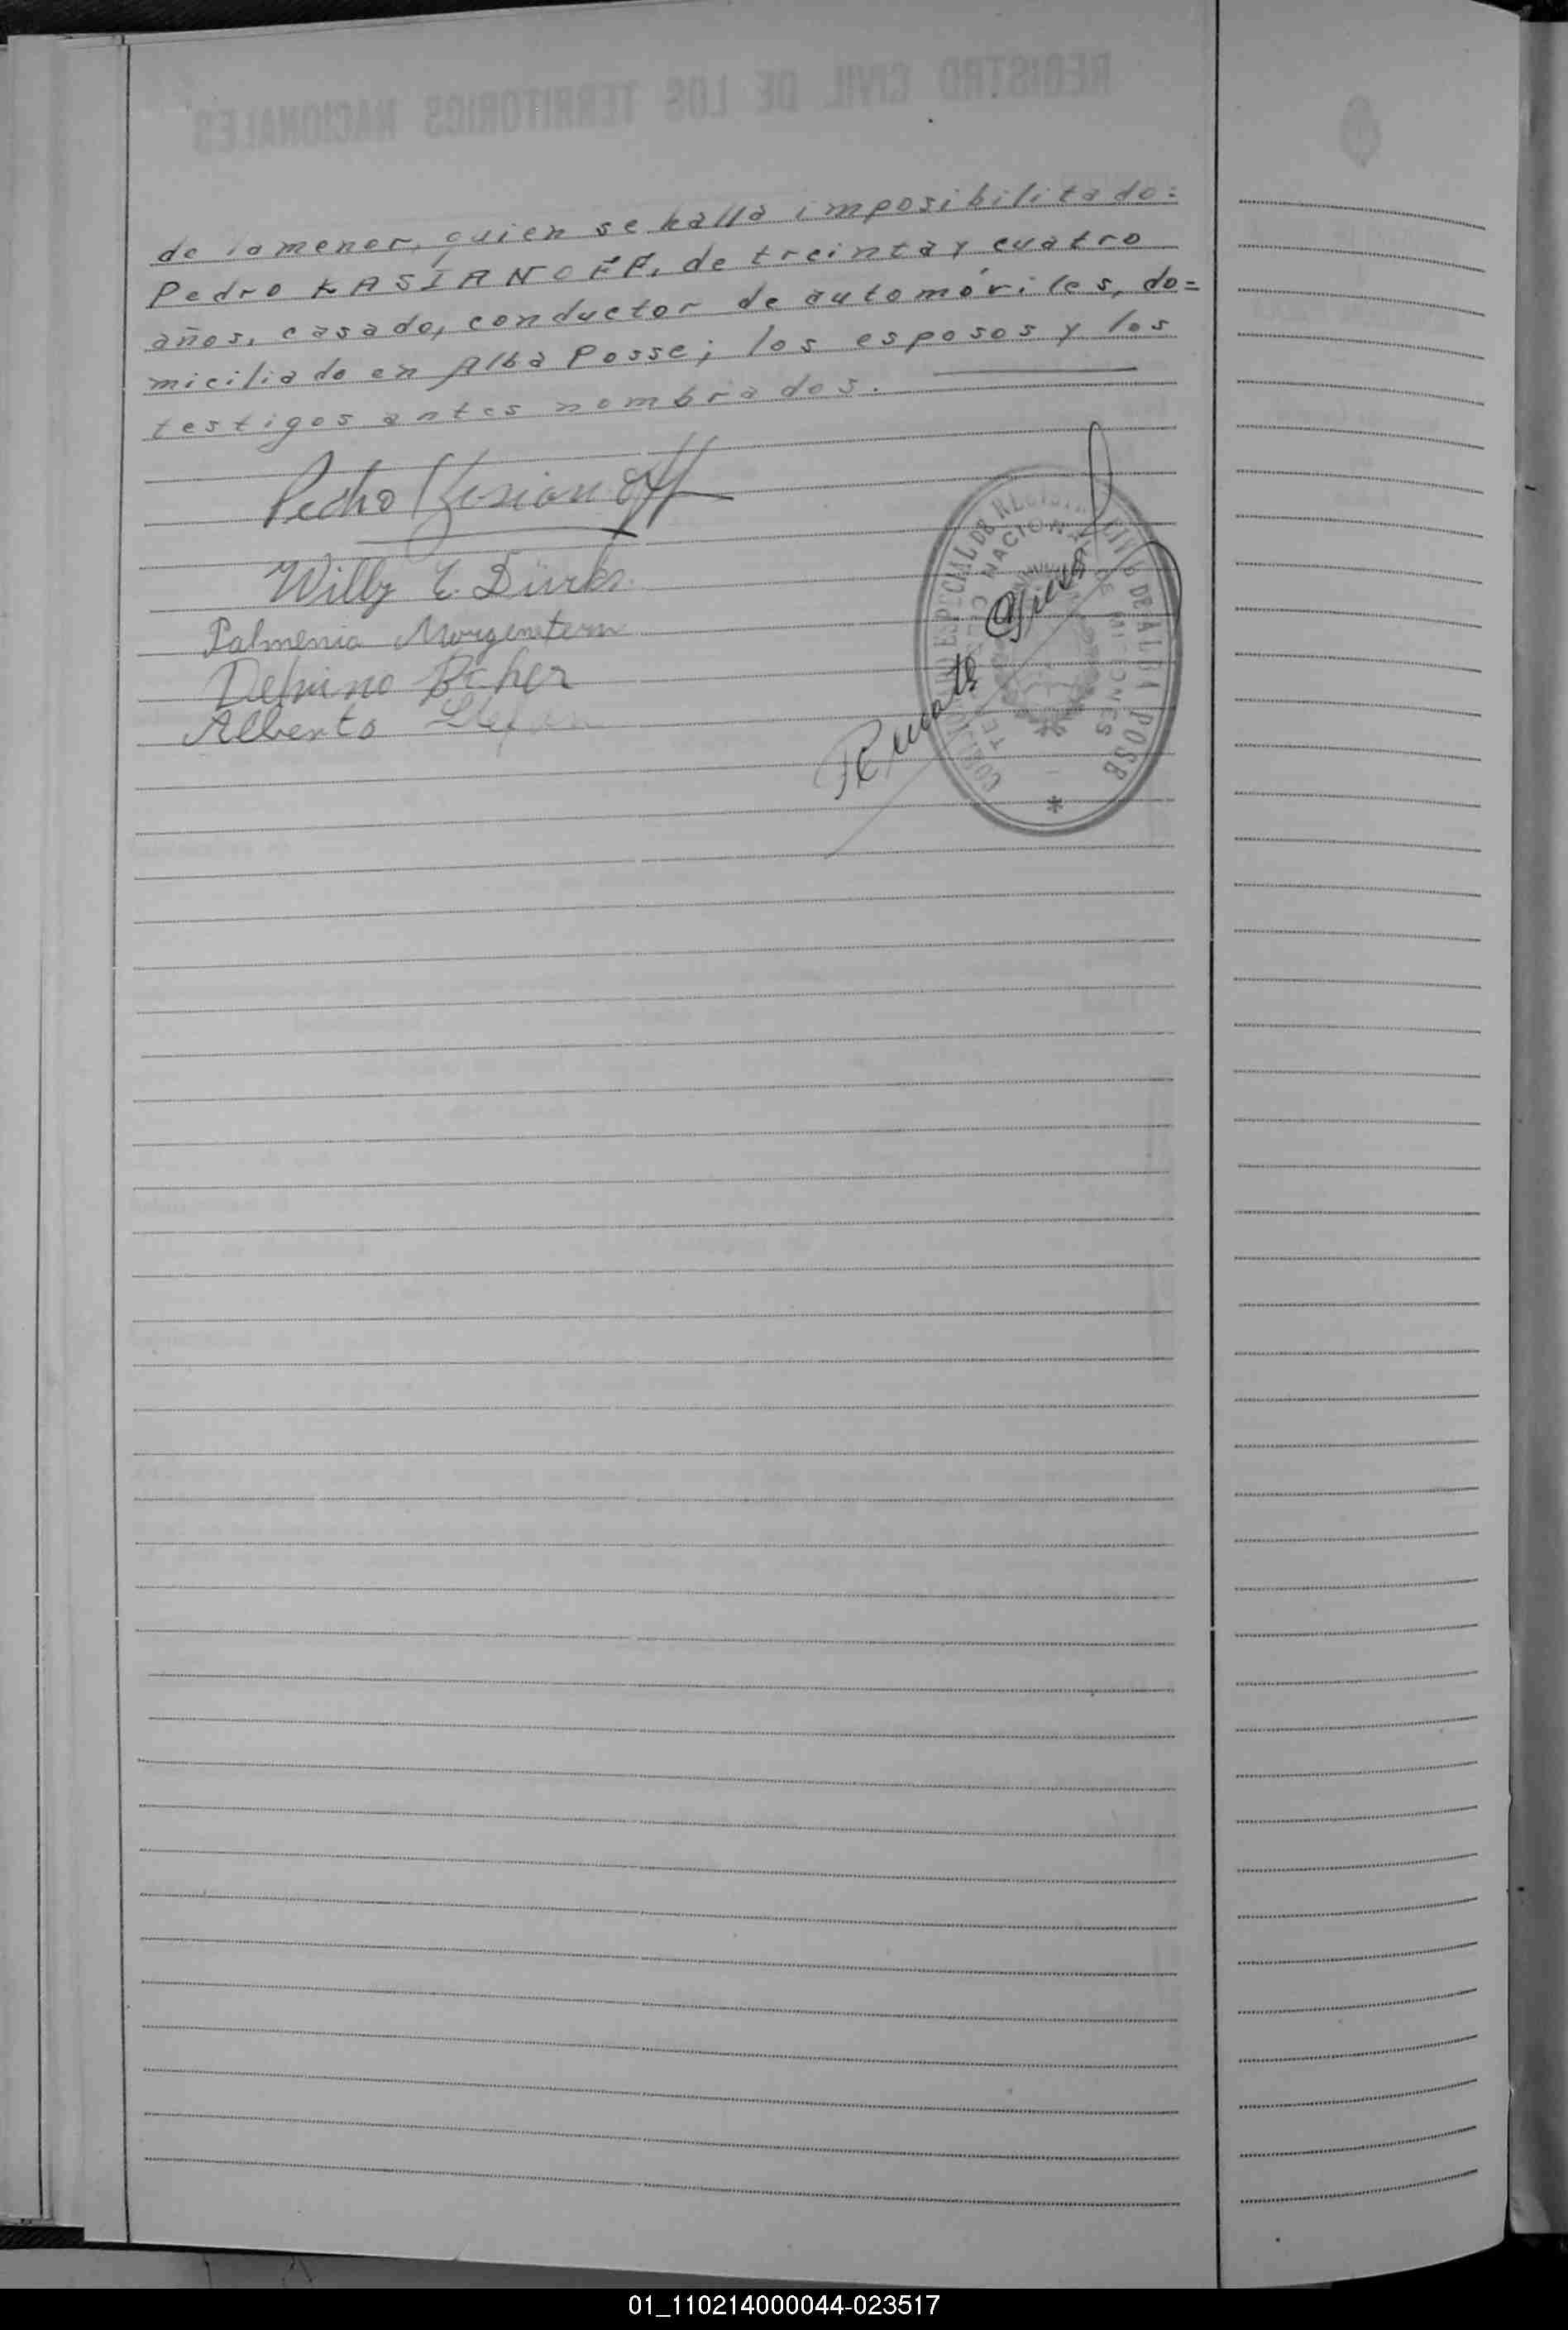 de la menor, quien se halla imposibilitado=
Pedro KASIANOFF, de treinta y cuatro
años, casado, conductor de automóviles, do=
miciliado en Alba Posse; los esposos y los
testigos antes nombrados.
Pedro Kasianoff
Willy E. Dürks
Palmenia Morgenstern
Delmino
Alberto
REGISTRO CIVIL DE LOS TERRITORIOS NACIONALES
01_110214000044-023517